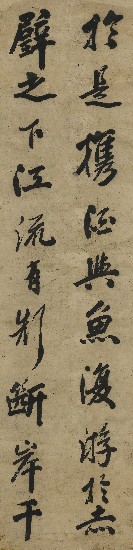 於是攜酒與魚復游於赤
壁之下江流有聲斷岸千